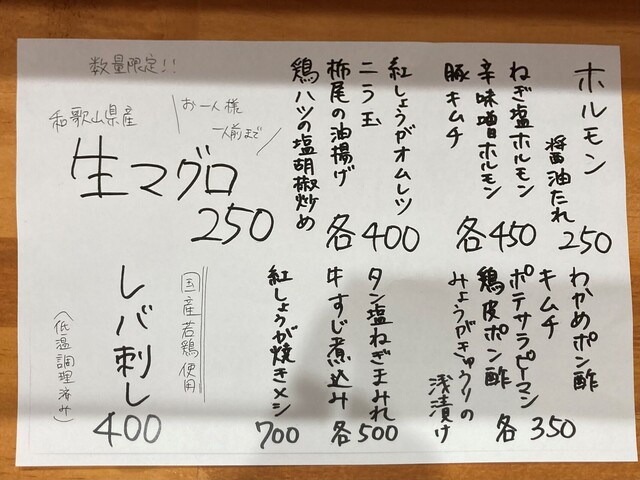 ホルモン
醤油たれ
250
ねぎ塩ホルモン
辛味噌ホルモン
豚キムチ
各450
紅しょうがオムレツ
ニラ玉
栃尾の油揚げ
鶏ハツの塩胡椒炒め
各400
数量限定!!
お一人様
一人前まで
和歌山県産
生マグロ
250
わかめポン酢
キムチ
ポテサラピーマン
鶏皮ポン酢
みょうがきゅうりの
浅漬け
各350
タン塩ねぎまみれ
牛すじ煮込み
各500
紅しょうが焼きメシ
700
国産若鶏使用
レバ刺し
(低温調理済み)
400